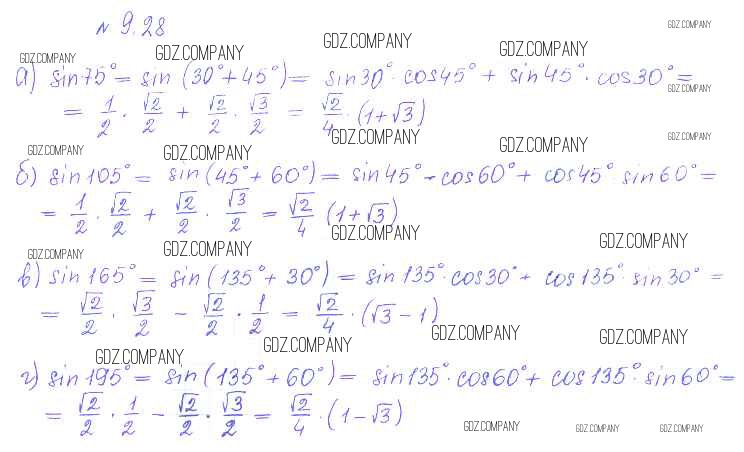 № 9.28
GDZ.COMPANY
GDZ.COMPANY GDZ.COMPANY GDZ.COMPANY GDZ.COMPANY
а) sin75° = sin (30° + 45°) = sin30° · cos45° + sin45° · cos30° =
GDZ.COMPANY
= 1/2 · √2/2 + √2/2 · √3/2 = √2/4 · (1+√3)
GDZ.COMPANY GDZ.COMPANY GDZ.COMPANY GDZ.COMPANY GDZ.COMPANY
б) sin105° = sin(45° + 60°) = sin45° · cos60° + cos45° · sin60° =
= 1/2 · √2/2 + √2/2 · √3/2 = √2/4 (1+√3)
GDZ.COMPANY GDZ.COMPANY GDZ.COMPANY GDZ.COMPANY
в) sin165° = sin(135° + 30°) = sin135° · cos30° + cos135° · sin30° =
= √2/2 · √3/2 − √2/2 · 1/2 = √2/4 · (√3 − 1)
GDZ.COMPANY GDZ.COMPANY GDZ.COMPANY GDZ.COMPANY
г) sin195° = sin(135° + 60°) = sin135° · cos60° + cos135° · sin60° =
= √2/2 · 1/2 − √2/2 · √3/2 = √2/4 · (1 − √3)
GDZ.COMPANY GDZ.COMPANY GDZ.COMPANY